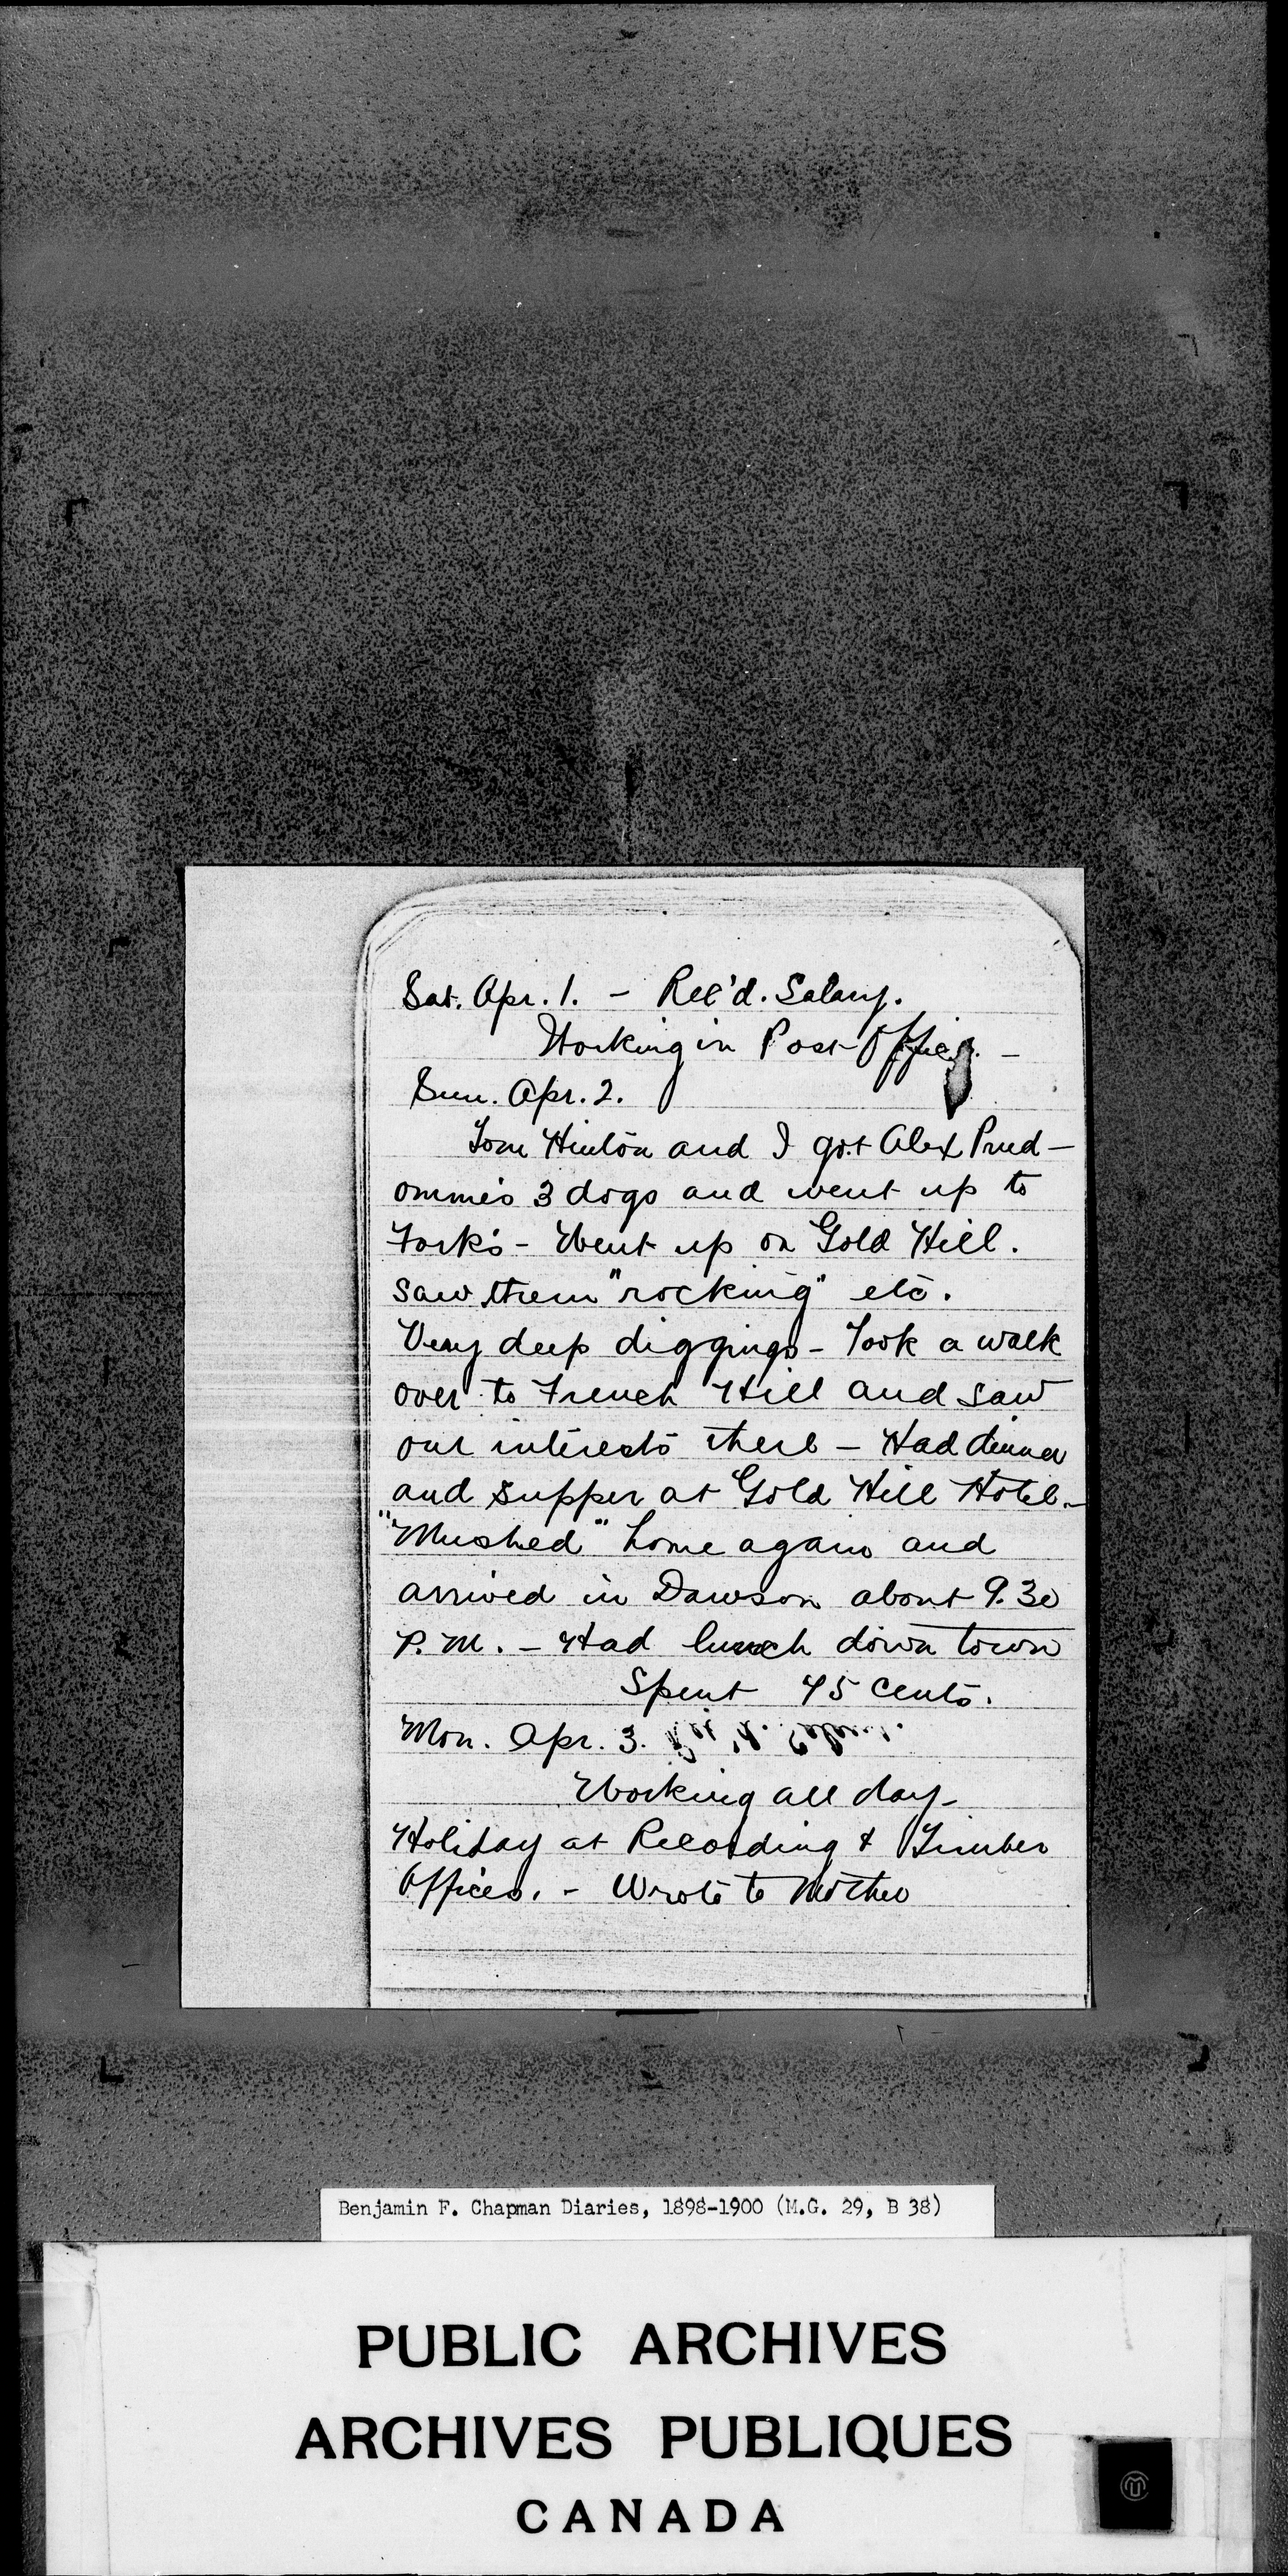 Sat. Apr. 1. - Rec'd. Salary.
Working in Post Office. -
Sun. Apr. 2.
Tom Hinton and I got Alex Prud-
omme's 3 dogs and went up to
Forks - Went up on Gold Hill.
saw them "rocking" etc.
Very deep diggings - Took a walk
over to French Hill and saw
our interests there - Had dinner
and supper at Gold Hill Hotel. -
"Mushed" home again and
arrived in Dawson about 9.30
P.M. - Had lunch down town
Spent 45 cents.
Mon. Apr. 3. Rec'd. Salary.
Working all day -
Holiday at Recording & Timber
Offices. - Wrote to Mother
Benjamin F. Chapman Diaries, 1898-1900 (M.G. 29, B 38)
PUBLIC ARCHIVES
ARCHIVES PUBLIQUES
CANADA